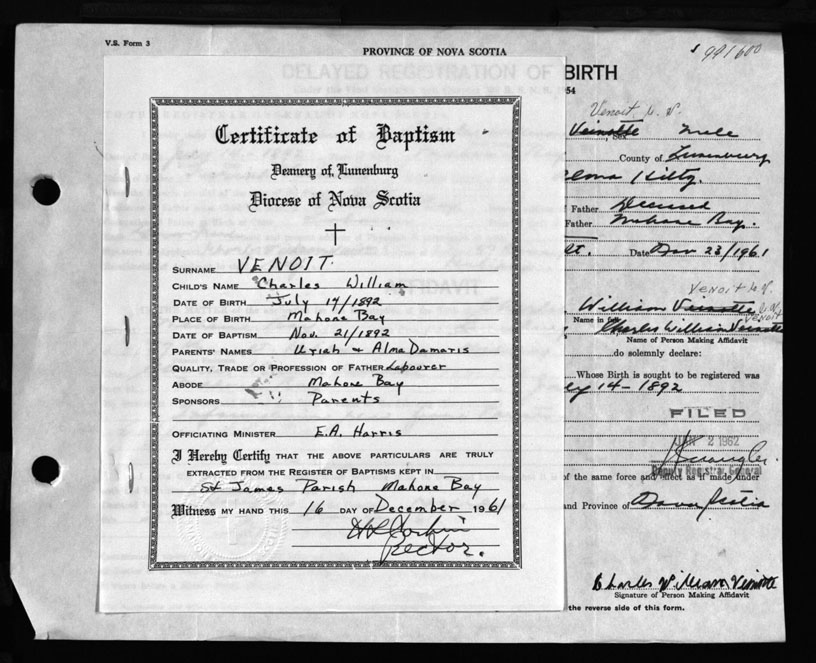 V.S. Form 3
PROVINCE OF NOVA SCOTIA
$ 991600
DELAYED REGISTRATION OF BIRTH
54
Venoit
Certificate of Baptism
Deanery of, Lunenburg
Diocese of Nova Scotia
SURNAME VENOIT.
CHILD'S NAME Charles William
DATE OF BIRTH July 14/1892
PLACE OF BIRTH Mahone Bay
DATE OF BAPTISM Nov. 21/1892
PARENTS' NAMES Uriah & Alma Damaris
QUALITY, TRADE OR PROFESSION OF FATHER Labourer
ABODE Mahone Bay
SPONSORS Parents
OFFICIATING MINISTER E.A. Harris
I Hereby Certify THAT THE ABOVE PARTICULARS ARE TRULY
EXTRACTED FROM THE REGISTER OF BAPTISMS KEPT IN
St James Parish Mahone Bay
Witness MY HAND THIS 16 DAY OF December 1961
Rector.
Veinotte Sex Male
County of Lunenburg
Father Deceased
Father Mahone Bay.
Date Nov 23/1961
VENOIT
William Veinotte
VENOIT
Name in full Charles William Veinotte
Name of Person Making Affidavit
do solemnly declare:
Whose Birth is sought to be registered was
14-1892
FILED
2 1962
Deputy Registrar General
of the same force and effect as if made under
and Province of Nova Scotia
Charles William Veinotte
Signature of Person Making Affidavit
the reverse side of this form.